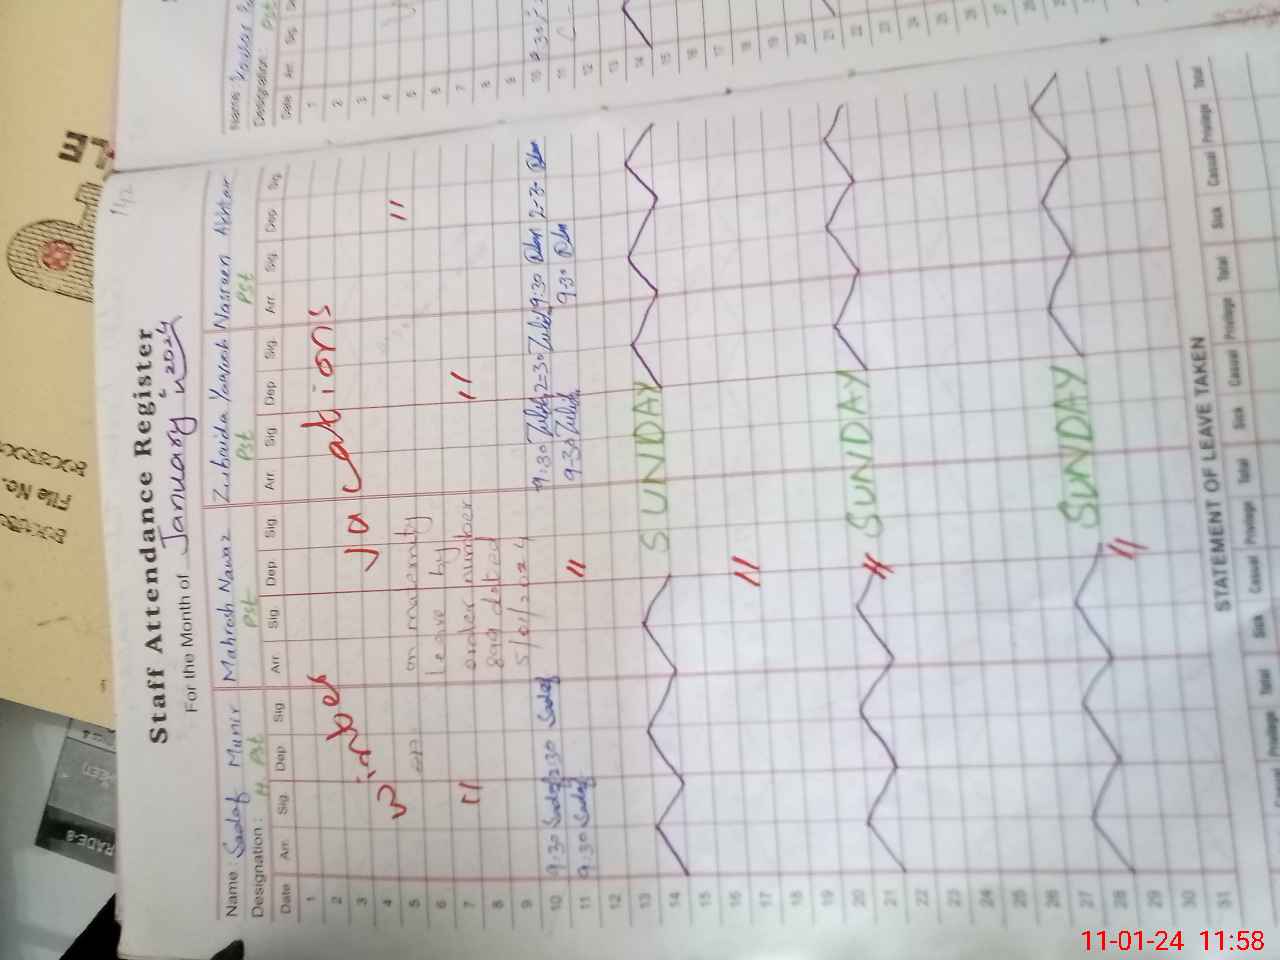 Staff Attendance Register
For the Month of January 2024
Name: Sadaf Munir Mahrosh Nawaz Zubaida Nasreen Akhtar
Designation: H Pst Pst Pst Pst
Date Arr. Sig. Dep Sig Arr Sig. Dep. Sig. Arr. Sig Dep Sig. Arr. Sig. Dep Sig.
1
2
3
4
5
6
7
8
9
10 9.30 Sadaf 2:30 Sadaf 9:30 2=30 9:30 2-30
11 9.30 Sadaf 9.30 9.30
12
13
14
15
16
17
18
19
20
21
22
23
24
25
26
27
28
29
30
31
Winter Vacations
on
on maternity
Leave by
order number
899 dated
5/01/2024
SUNDAY
SUNDAY
SUNDAY
STATEMENT OF LEAVE TAKEN
Privilege Total Sick Casual Privilege Total Sick Casual Privilege Total Sick Casual Privilege Total
Name:
Designation: Pst
Date Arr. Sig.
1
2
3
4
5
6
7
8
9
10
11
12
13
14
15
16
17
18
19
20
21
22
23
24
25
26
27
28
File No.
GRADE-8
11-01-24 11:58